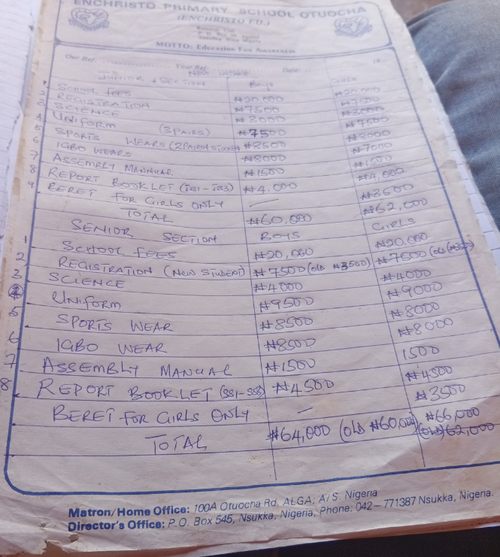 ENCHRISTO PRIMARY SCHOOL OTUOCHA
(ENCHRISTO FD.)
MOTTO: Education For Awareness
Our Ref Your Ref Date
JUNIOR SECTION BOYS GIRLS
1 SCHOOL FEES ₦20,000 ₦20,000
2 REGISTRATION ₦7500 ₦7500
3 SCIENCE ₦3000 ₦3000
4 UNIFORM (2 PAIRS) ₦7500 ₦7500
5 SPORTS WEARS (2 PAIRS ₦8500 ₦8000
6 IGBO WEARS ₦8000 ₦7000
7 ASSEMBLY MANUAL ₦1500 ₦1500
8 REPORT BOOKLET (JS1-JS3) ₦4,000 ₦4,000
9 BERET FOR GIRLS ONLY — ₦3500
TOTAL ₦60,000 ₦62,000
SENIOR SECTION BOYS GIRLS
1 SCHOOL FEES ₦20,000 ₦20,000
2 REGISTRATION (NEW STUDENT) ₦7500 (OLD ₦3500) ₦7500 (OLD ₦3500)
3 SCIENCE ₦4000 ₦4000
4 UNIFORM ₦9500 ₦9000
5 SPORTS WEAR ₦8500 ₦8000
6 IGBO WEAR ₦8500 ₦8000
7 ASSEMBLY MANUAL ₦1500 1500
8 REPORT BOOKLET (SS1-SS3) ₦4500 ₦4500
BERET FOR GIRLS ONLY — ₦3500
TOTAL ₦64,000 (OLD ₦60,000) ₦66,000
(OLD) 62,000
Matron/Home Office: 100A Otuocha Rd, ALGA, A/S. Nigeria
Director's Office: P.O. Box 545, Nsukka, Nigeria, Phone: 042-771387 Nsukka, Nigeria.